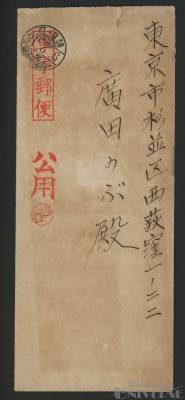 東京市杉並区西荻窪一ノ二二
廣田のぶ殿
郵便
公用
UNIVERSE